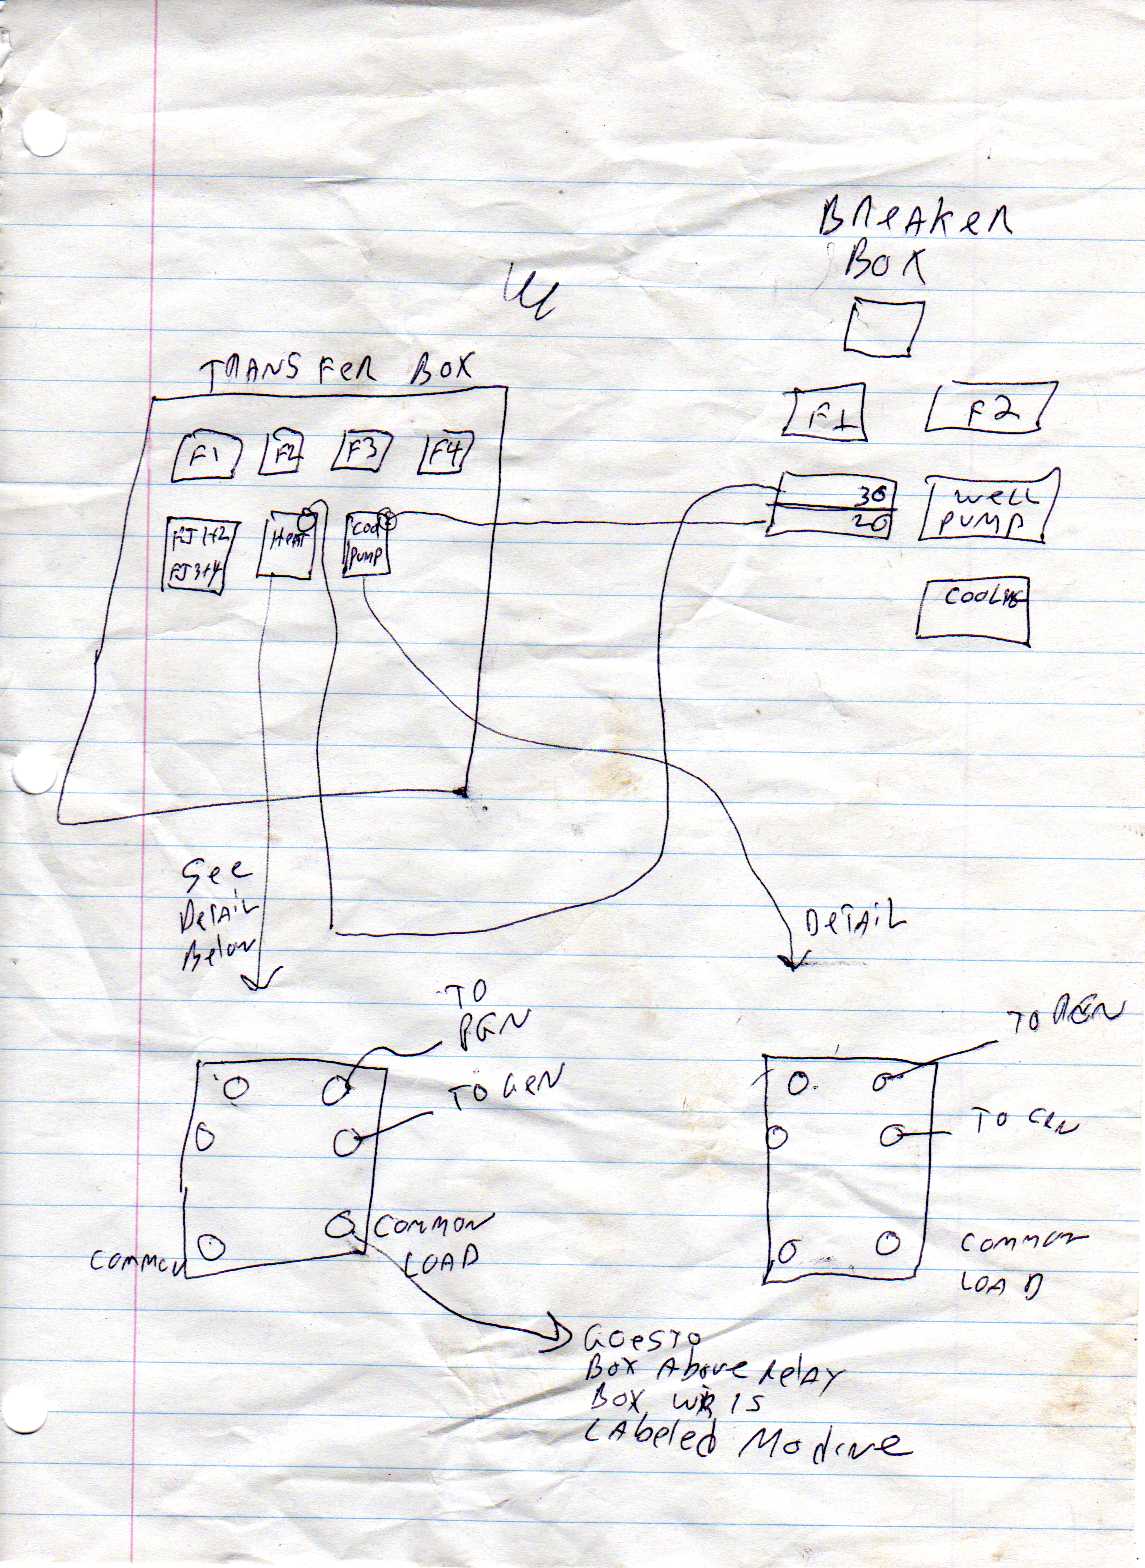 BREAKER
BOX
TRANSFER BOX
F1
F2
F3
F4
F1
F2
FJ 1+2
FJ 3+4
Heat
COOL
PUMP
30
20
WELL
PUMP
COOLING
See
DeTAIL
Below
DETAIL
TO
REN
TO GEN
COMMON
LOAD
COMMON
TO REN
TO GEN
COMMON
LOAD
GOESTO
BOX Above RelAY
BOX WIR IS
LAbeled Modine